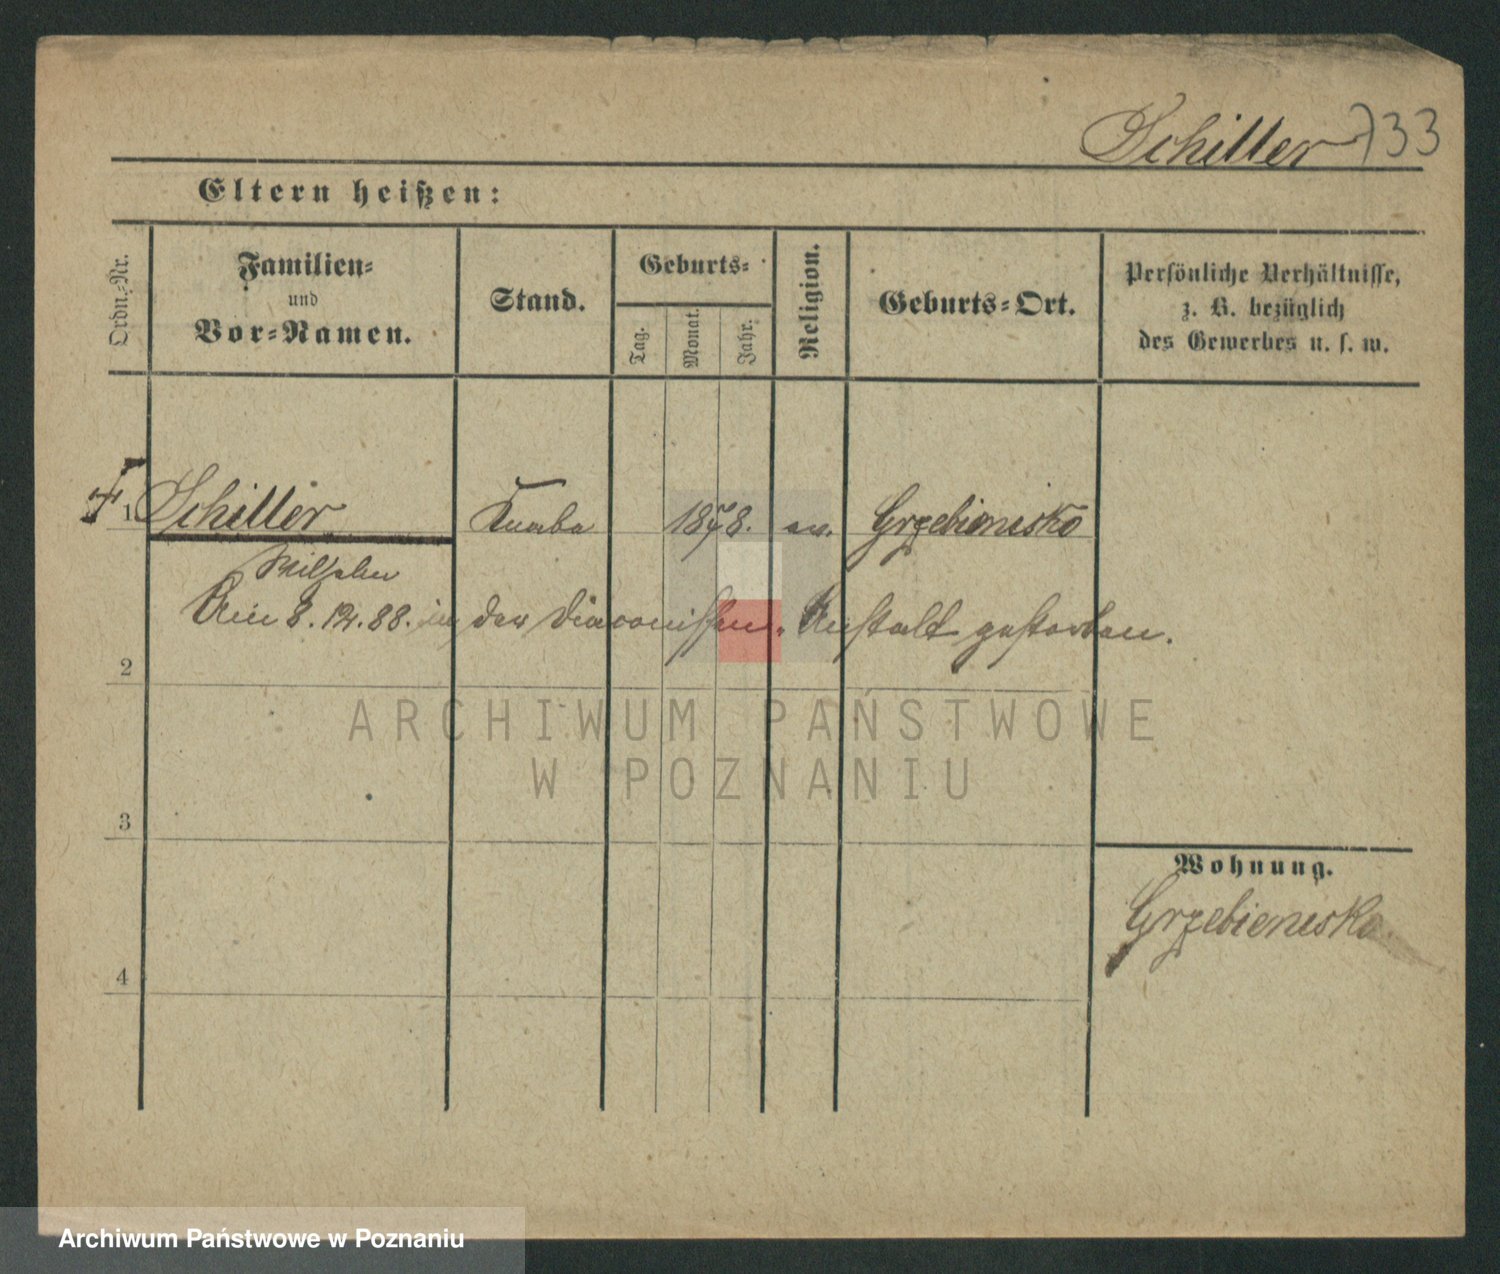 Schiller 733
Eltern heißen:
Ordn.-Nr.
Familien-
und
Vor-Namen.
Stand.
Geburts-
Tag.
Monat.
Jahr.
Religion.
Geburts-Ort.
Persönliche Verhältnisse,
z. B. bezüglich
des Gewerbes u. s. w.
1 Schiller Knabe 1878. ev. Grzebienisko
Wilhelm
Am 8. 12. 88. in der Diaconissen-Anstalt gestorben.
2
ARCHIWUM PAŃSTWOWE
W POZNANIU
3
Wohnung.
Grzebienisko
4
Archiwum Państwowe w Poznaniu